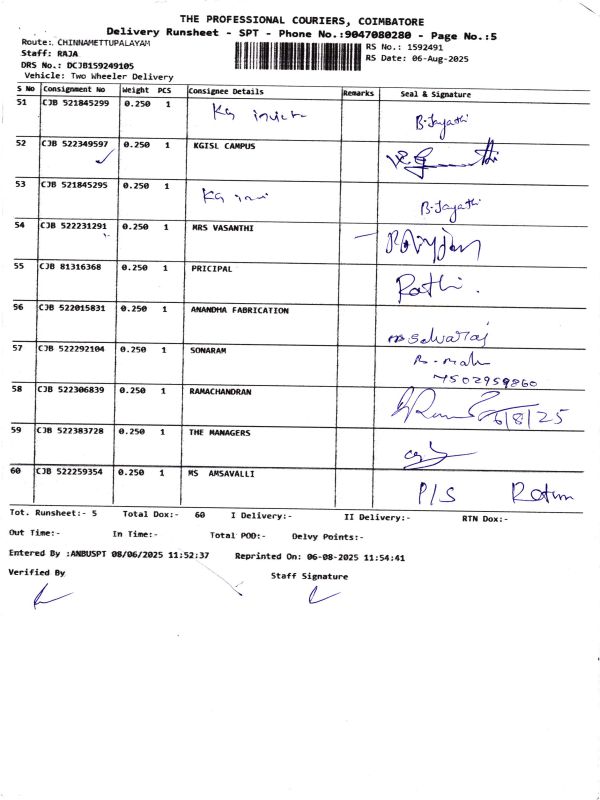 THE PROFESSIONAL COURIERS, COIMBATORE
Delivery Runsheet - SPT - Phone No.:9047080280 - Page No.:5
Route: CHINNAMETTUPALAYAM
RS No.: 1592491
Staff: RAJA
RS Date: 06-Aug-2025
DRS No.: DCJB159249105
Vehicle: Two Wheeler Delivery
S No Consignment No Weight PCS Consignee Details Remarks Seal & Signature
51 CJB 521845299 0.250 1 KG B-Jayathi
52 CJB 522349597 0.250 1 KGISL CAMPUS
53 CJB 521845295 0.250 1 KG B-Jayathi
54 CJB 522231291 0.250 1 MRS VASANTHI
55 CJB 81316368 0.250 1 PRICIPAL Rathi.
56 CJB 522015831 0.250 1 ANANDHA FABRICATION Selvaraj
57 CJB 522292104 0.250 1 SONARAM
58 CJB 522306839 0.250 1 RAMACHANDRAN 6/8/25
59 CJB 522383728 0.250 1 THE MANAGERS
60 CJB 522259354 0.250 1 MS AMSAVALLI P/S
Tot. Runsheet:- 5 Total Dox:- 60 I Delivery:- II Delivery:- RTN Dox:-
Out Time:- In Time:- Total POD:- Delvy Points:-
Entered By :ANBUSPT 08/06/2025 11:52:37 Reprinted On: 06-08-2025 11:54:41
Verified By
Staff Signature